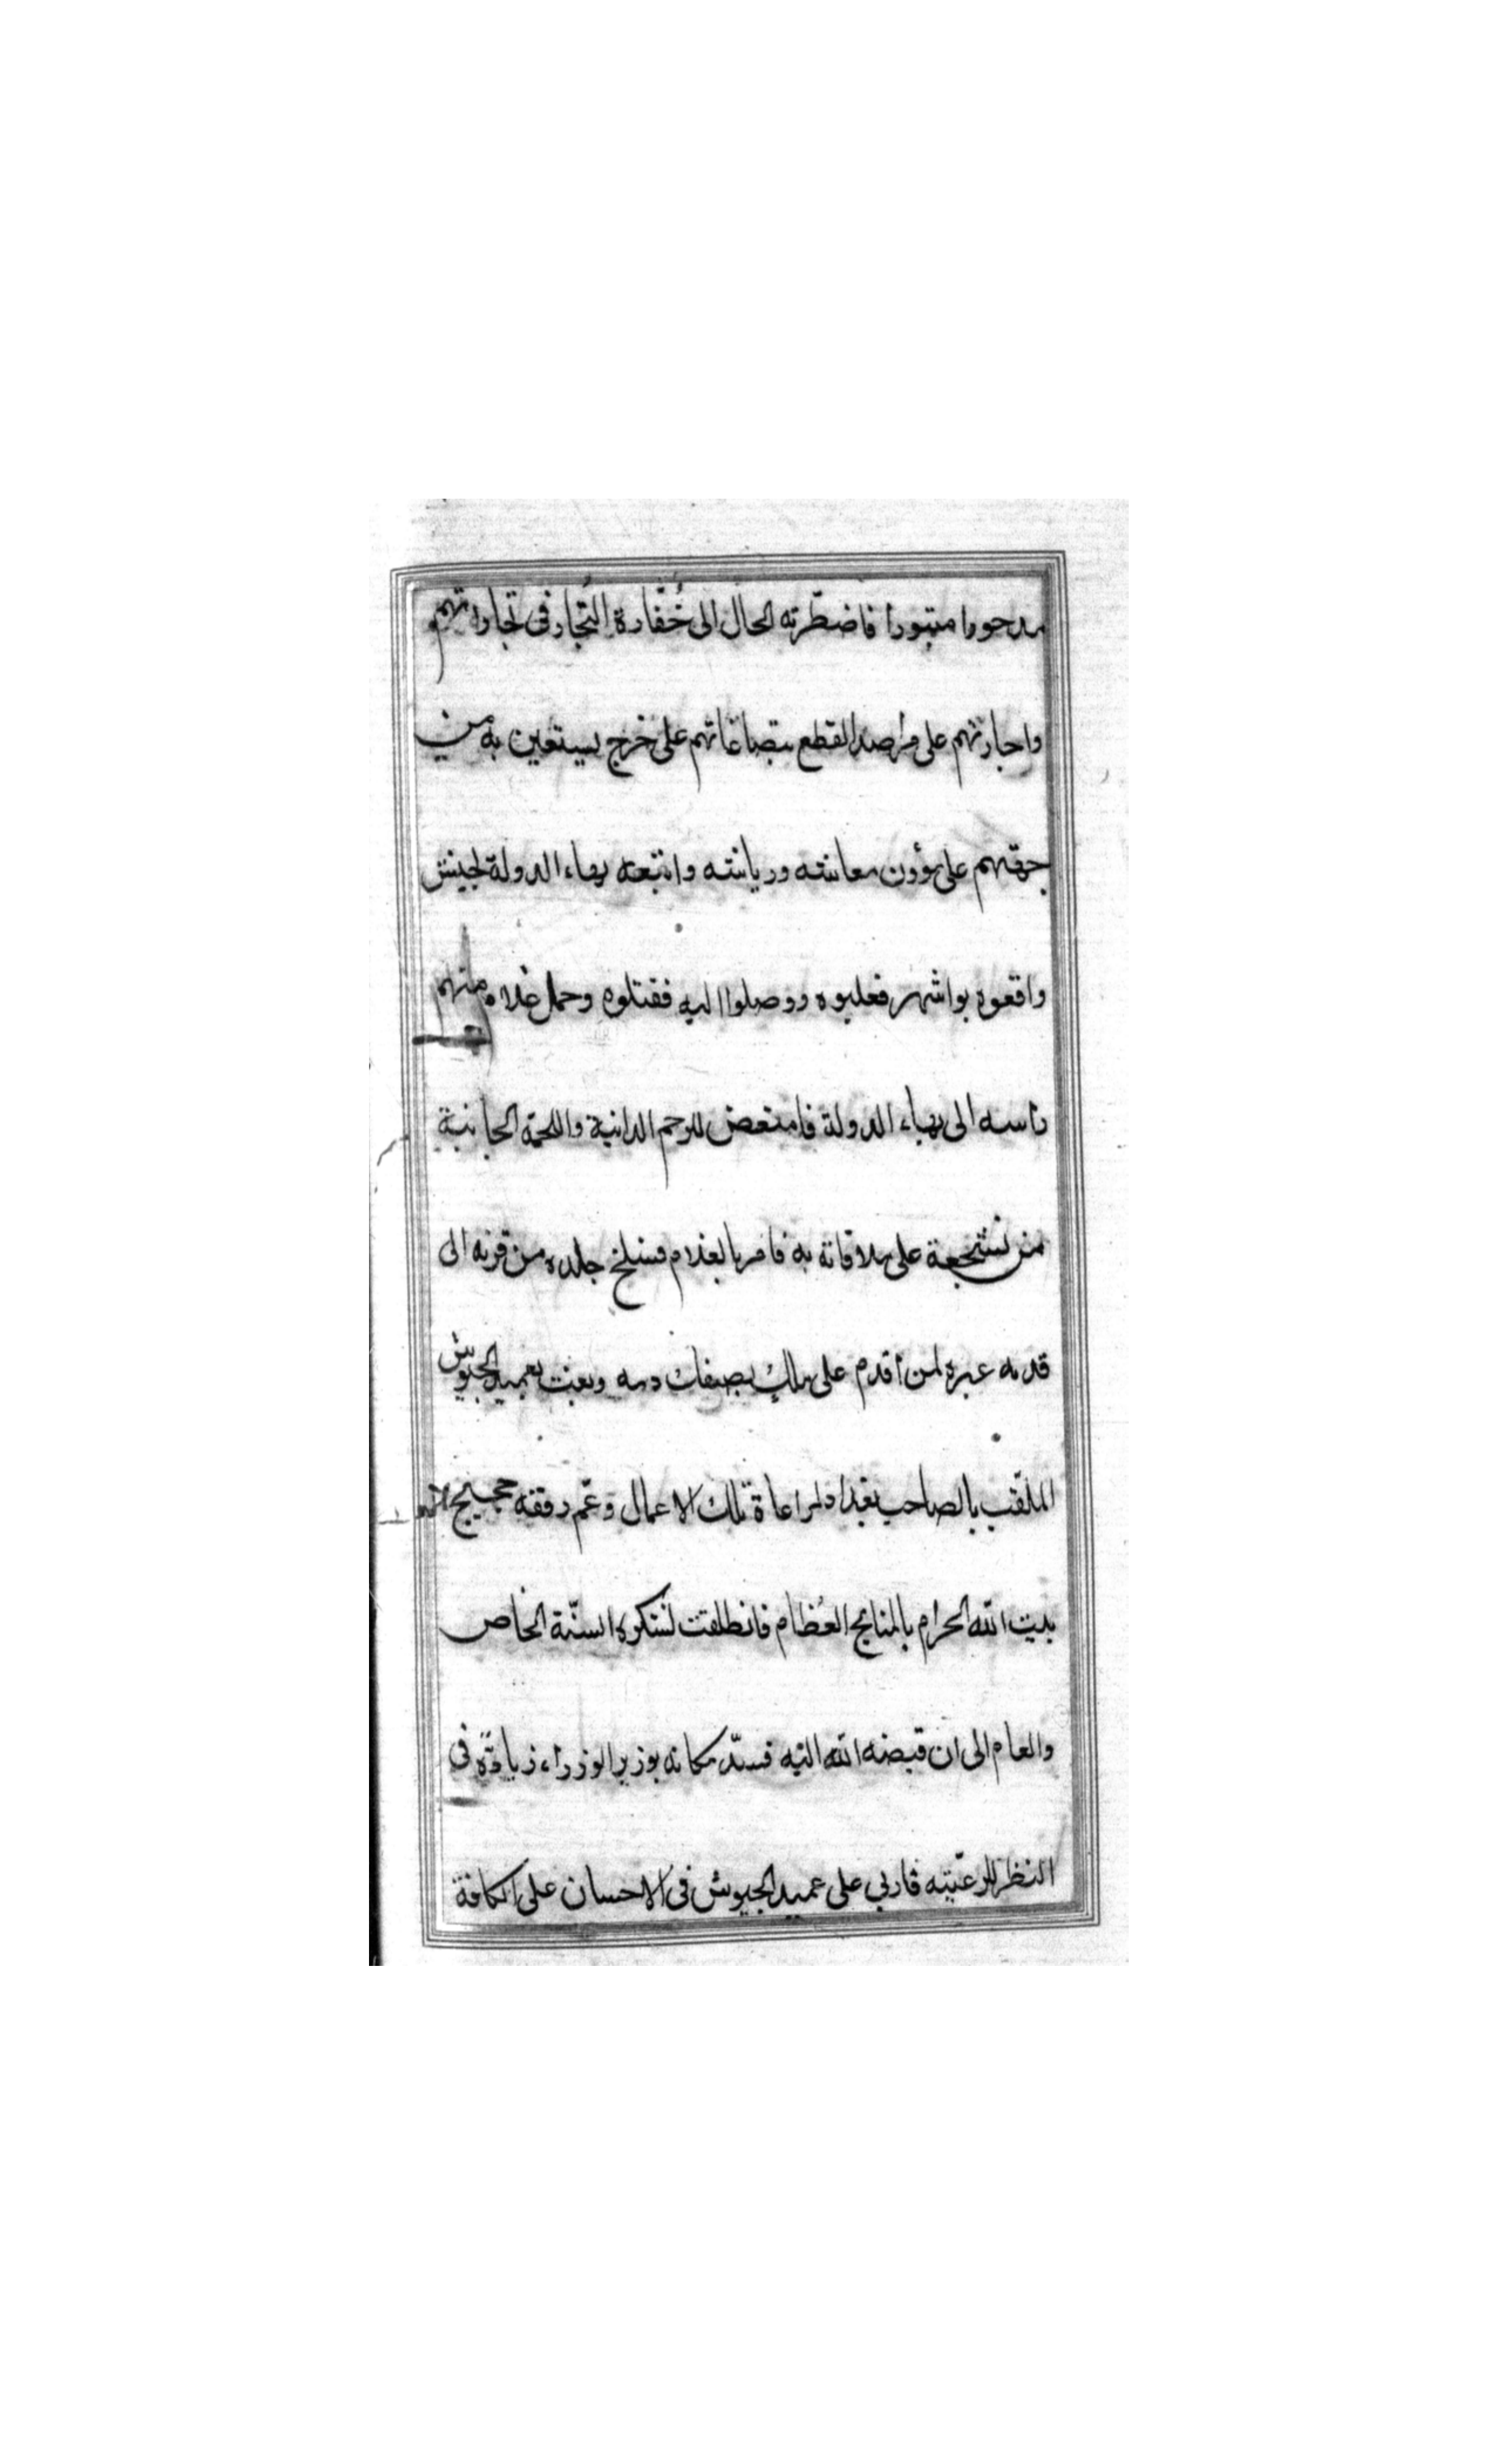 مدحورا مثبورا فاضطّرته الحال الى خُفّارة التُجار فى تجاراتهم و
واجارتهم على مراصد القطع ببضاعاتهم على خرج يستعين به من
جهتهم على مؤون معاشه ورياشه واتبعه بهاء الدولة بجيش
واقعوه بواشهر فغلبوه ووصلوا اليه فقتلوه وحمل غلام منهم
راسه الى بهاء الدولة فامتعض للرحم الدانية واللحمة الحانية
من تشجعة على ملاقاته به فامر بالغلام فسلخ جلده من قرنه الى
قدمه عبرة لمن أقدم على ملك بصفات دمه وبعث بعميد الجيوش
الملقّب بالصاحب بغداد لمراعاة تلك الاعمال وعّم رفقه حجيج
بيت الله الحرام بالمنايح العُظام فانطلقت لشكره السنّة الخاص
والعام الى ان قبضه الله اليه فسدّ مكانه بوزير الوزراء زيادة فى
النظر للرعيّته فاربي على عميد الجيوش فى الاحسان على الكافة